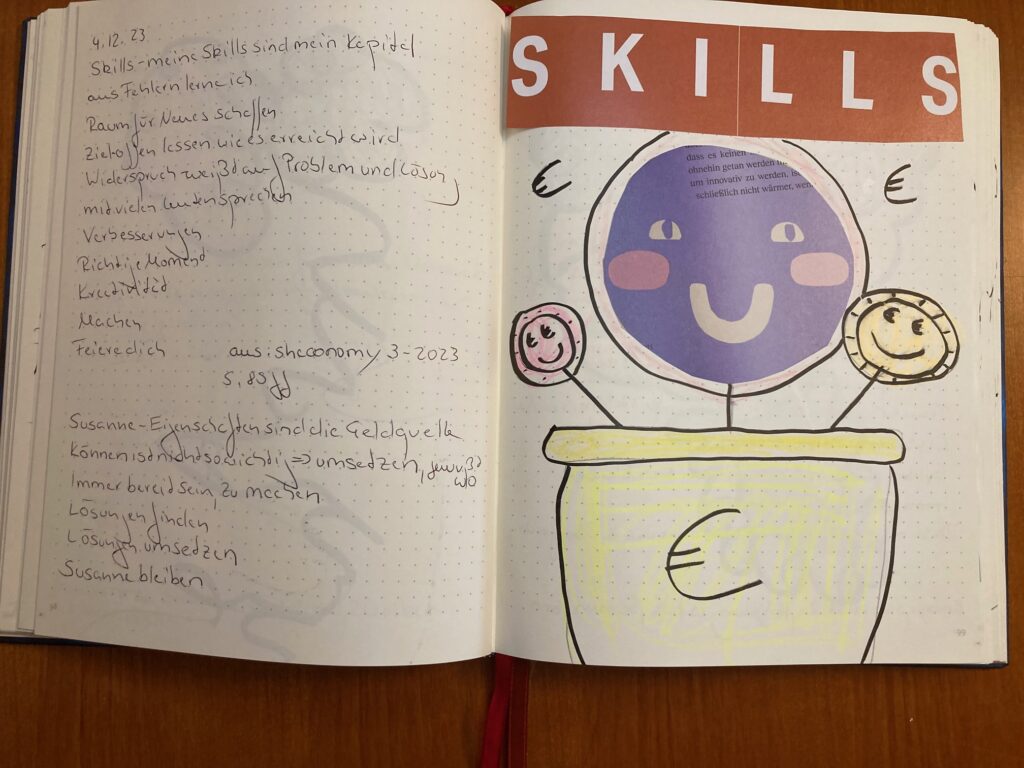 4.12.23
Skills - meine Skills sind mein Kapital
aus Fehlern lerne ich
Raum für Neues schaffen
Ziel - offen lassen, wie es erreicht wird
Widerspruch weißt auf Problem und Lösung
mit vielen Leuten sprechen
Verbesserungen
Richtige Moment
Kreativität
Machen
Feiere dich
aus: sheconomy 3-2023
S. 85ff
Susanne - Eigenschaften sind die Geldquelle
Können ist nicht so wichtig => umsetzen,
wo
Immer bereit sein, zu machen
Lösungen finden
Lösungen umsetzen
Susanne bleiben
SKILLS
dass es keinen
ohnehin getan werden
um innovativ zu werden,
schließlich nicht wärmer, wen
€
€
€
99